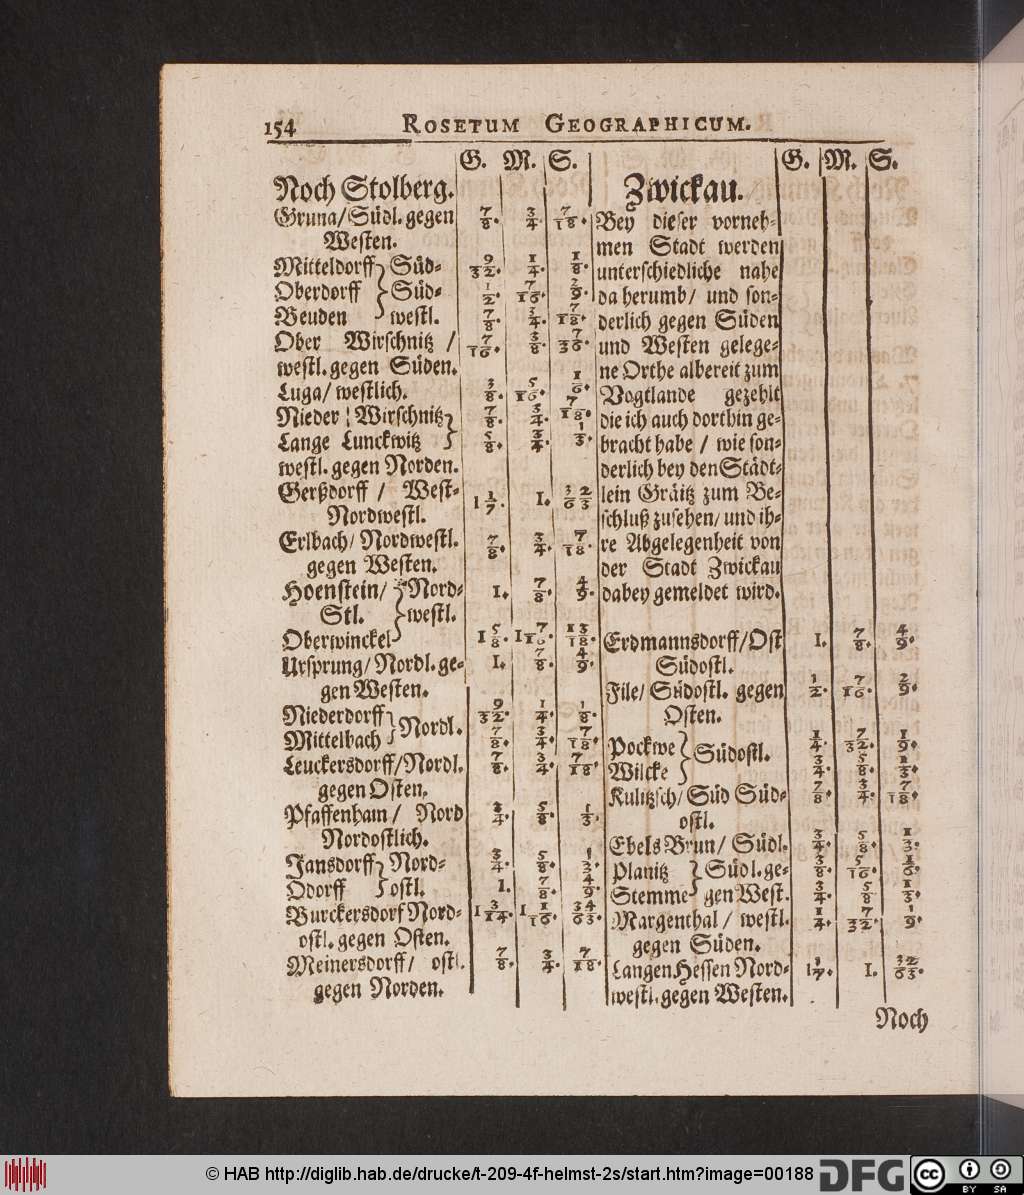 154 ROSETUM GEOGRAPHICUM.
G. M. S.
Noch Stolberg.
Gruna/Südl. gegen 7/8. 3/4. 7/18.
Westen.
Mitteldorff } Süd- 9/32. 1/4. 1/8.
Oberdorff } Süd- 1/2. 7/16. 2/9.
Beuden } westl. 7/8. 3/4. 7/18.
Ober Wirschnitz / 7/16. 3/8. 7/36.
westl. gegen Süden.
Luga/ westlich. 3/8. 5/16. 1/6.
Nieder-Wirschnitz } 7/8. 3/4. 7/18.
Lange Lunckwitz } 5/8. 3/4. 1/3.
westl. gegen Norden.
Gerßdorff / West- 1 1/7. 1. 3/6 2/3
Nordwestl.
Erlbach/ Nordwestl. 7/8. 3/4. 7/18.
gegen Westen.
Hoenstein/ } Nord- 1. 7/8. 4/9.
Stl. } westl.
Oberwinckel } 1 5/8. 1 7/16. 13/18.
Ursprung/ Nordl. ge- 1. 7/8. 4/9.
gen Westen.
Niederdorff } Nordl. 9/32. 1/4. 1/8.
Mittelbach } 7/8. 3/4. 7/18.
Leuckersdorff/Nordl. 7/8. 3/4. 7/18.
gegen Osten.
Pfaffenhain/ Nord 3/4. 5/8. 1/3.
Nordostlich.
Jansdorff } Nord- 3/4. 5/8. 1/3.
Odorff } ostl. 1. 7/8. 4/9.
Burckersdorf Nord- 1 3/14. 1 1/16. 34/63.
ostl. gegen Osten.
Meinersdorff/ ostl. 7/8. 3/4. 7/18.
gegen Norden.
G. M. S.
Zwickau.
Bey dieser vorneh-
men Stadt werden
unterschiedliche nahe
da herumb/ und son-
derlich gegen Süden
und Westen gelege-
ne Orthe albereit zum
Vogtlande gezehlt
die ich auch dorthin ge-
bracht habe / wie son-
derlich bey den Städt-
lein Gräitz zum Be-
schluß zusehen/ und ih-
re Abgelegenheit von
der Stadt Zwickau
dabey gemeldet wird.
Erdmannsdorff/Ost 1. 7/8. 4/9.
Südostl.
File/ Südostl. gegen 1/2. 7/16. 2/9.
Osten.
Pockwe } Südostl. 1/4. 7/32. 1/9.
Wilcke } 3/4. 5/8. 1/3.
Kulitzsch/ Süd Süd- 7/8. 3/4. 7/18.
ostl.
Ebels Brun/ Südl. 3/4. 5/8. 1/3.
Planitz } Südl. ge- 3/8. 5/16. 1/6.
Stemme } gen West. 3/4. 5/8 1/3.
Margenthal / westl. 1/4. 7/32. 1/9.
gegen Süden.
Langen Hessen Nord- 1 1/7. 1. 32/63.
westl. gegen Westen.
Noch
© HAB http://diglib.hab.de/drucke/t-209-4f-helmst-2s/start.htm?image=00188 DFG cc BY SA